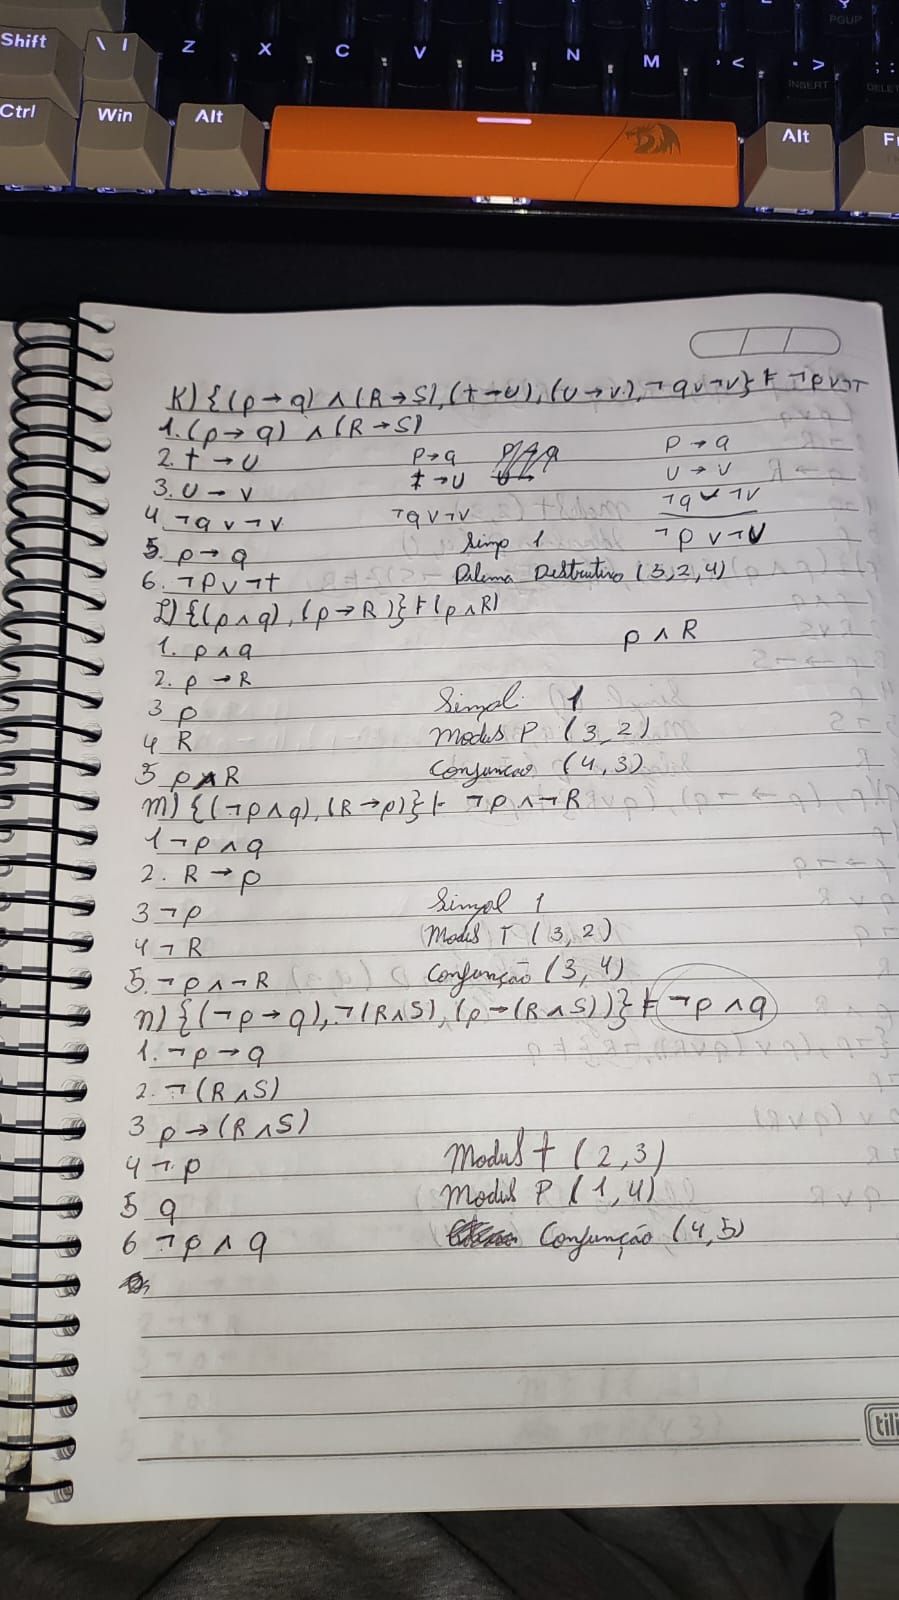 Shift
\ |
Z X C V B N M , < . >
; :
PGUP
INSERT
DELETE
Ctrl
Win
Alt
Alt
F
K) {(p → q) ∧ (R → S), (t → U), (U → V), ¬q ∨ ¬V} ⊢ ¬p ∨ ¬t
1. (p → q) ∧ (R → S)
2. t → U p → q p → q
3. U → V t → U U → V
4 ¬q ∨ ¬V ¬q ∨ ¬V ¬q ∨ ¬V
5. p → q Simp 1 ¬p ∨ ¬U
6. ¬p ∨ ¬t Dilema Destrutivo (3, 2, 4)
L) {(p ∧ q), (p → R)} ⊢ (p ∧ R)
1. p ∧ q p ∧ R
2. p → R
3 p Simpl 1
4 R Modus P (3, 2)
5 p ∧ R Conjuncao (4, 3)
m) {(¬p ∧ q), (R → p)} ⊢ ¬p ∧ ¬R
1 ¬p ∧ q
2. R → p
3 ¬p Simpl 1
4 ¬R Modus T (3, 2)
5. ¬p ∧ ¬R Conjunção (3, 4)
n) {(¬p → q), ¬(R ∧ S), (p → (R ∧ S))} ⊢ ¬p ∧ q
1. ¬p → q
2. ¬(R ∧ S)
3 p → (R ∧ S)
4 ¬p Modus t (2, 3)
5 q Modus P (1, 4)
6 ¬p ∧ q Conjunção (4, 5)
tili